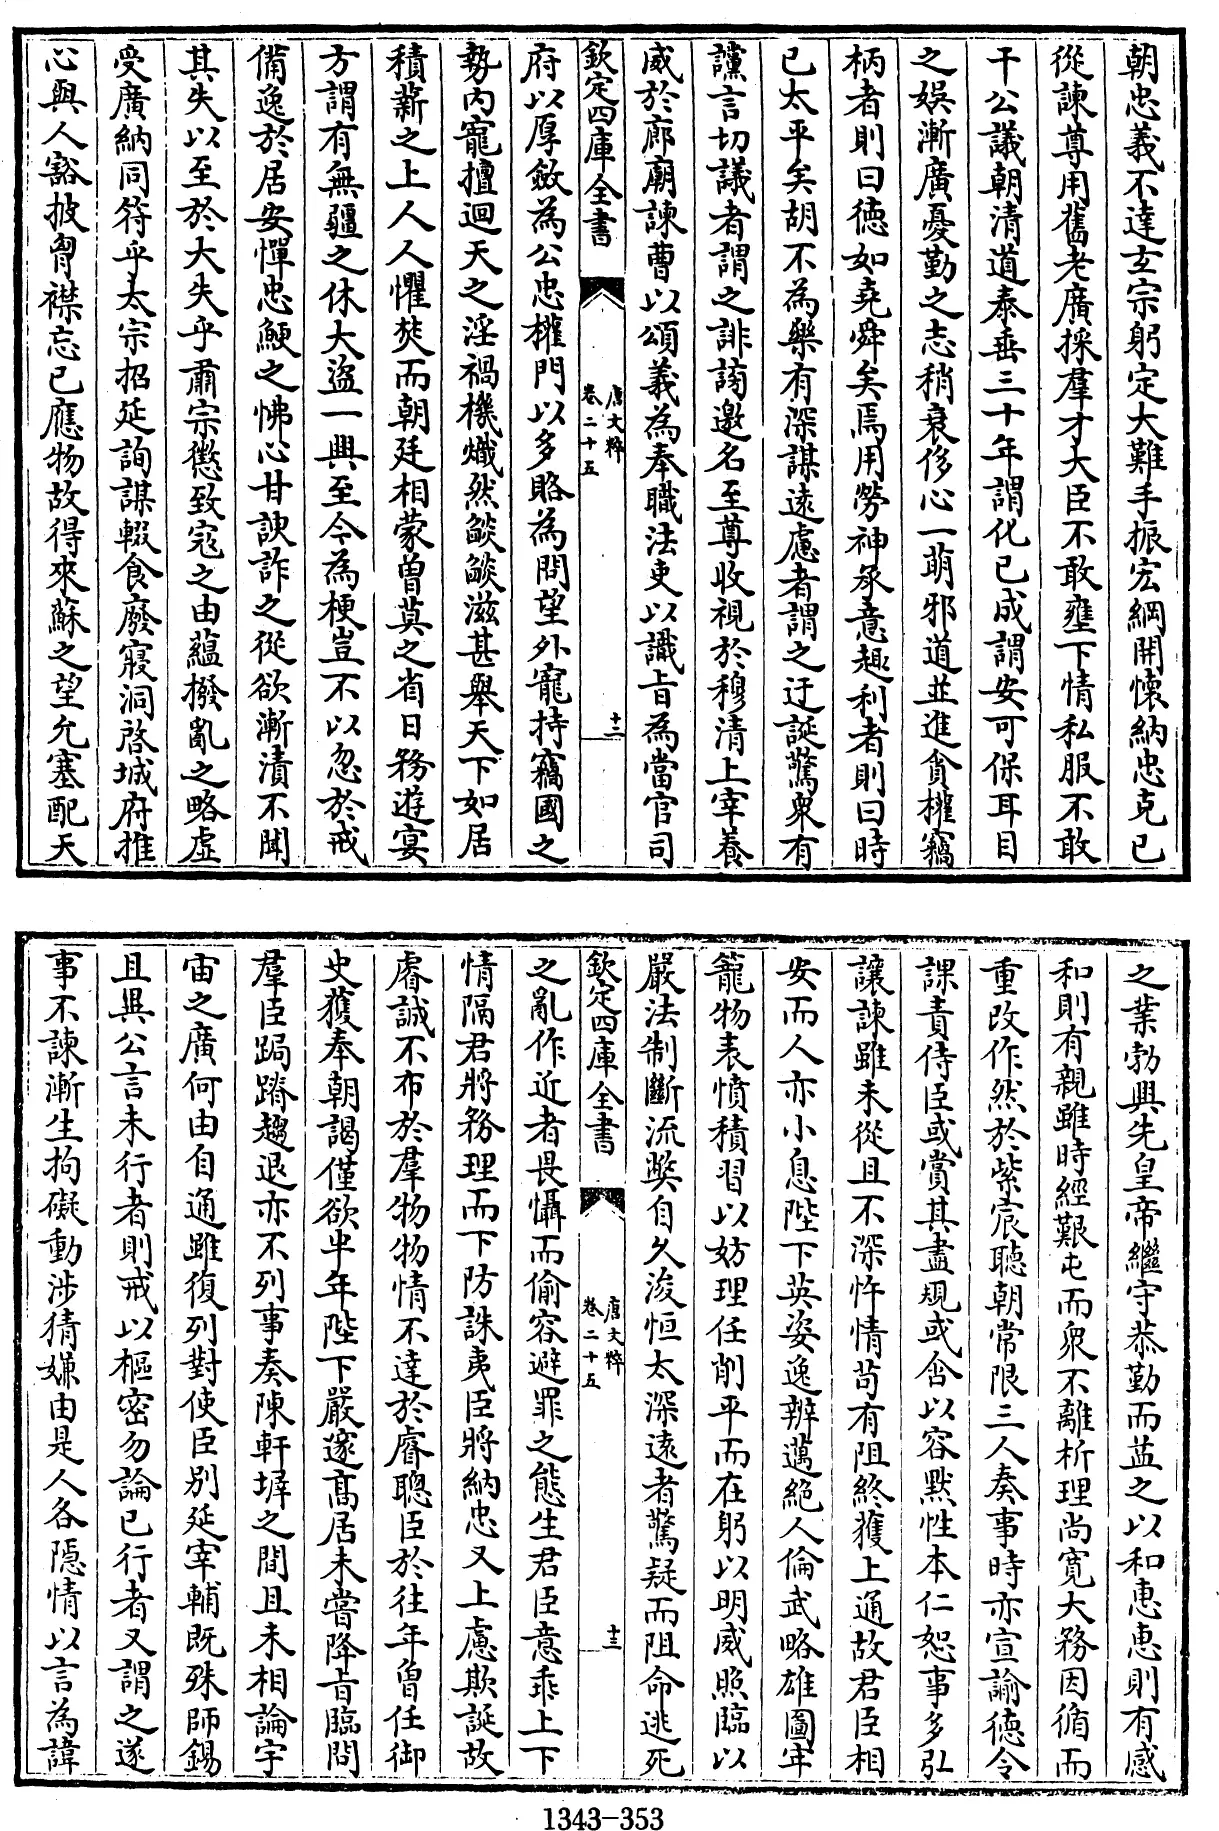 朝忠義不達玄宗躬定大難手振宏綱開懷納忠克已
從諫尊用舊老廣採羣才大臣不敢壅下情私服不敢
干公議朝清道泰垂三十年謂化已成謂安可保耳目
之娛漸廣憂勤之志稍衰侈心一萌邪道並進貪權竊
柄者則曰德如堯舜矣焉用勞神承意趣利者則曰時
已太平矣胡不為樂有深謀遠慮者謂之迂誕驚衆有
讜言切議者謂之誹謗邀名至尊收視於穆清上宰養
威於廊廟諫曹以頌義為奉職法吏以識旨為當官司
欽定四庫全書
唐文粹
卷二十五
十二
府以厚斂為公忠權門以多賂為問望外寵持竊國之
勢内寵擅迴天之淫禍機熾然燄燄滋甚舉天下如居
積薪之上人人懼焚而朝廷相蒙曽莫之省日務遊宴
方謂有無疆之休大盜一興至今為梗豈不以忽於戒
備逸於居安憚忠鯁之怫心甘諛詐之從欲漸漬不聞
其失以至於大失乎肅宗懲致寇之由藴撥亂之略虛
受廣納同符乎太宗招延詢謀輟食廢寢洞啓城府推
心與人豁披胷襟忘已應物故得來蘇之望允塞配天
之業勃興先皇帝繼守恭勤而益之以和惠惠則有感
和則有親雖時經艱屯而衆不離析理尚寛大務因循而
重改作然於紫宸聽朝常限三人奏事時亦宣諭德令
課責侍臣或賞其盡規或含以容黙性本仁恕事多弘
讓諫雖未從且不深忤情苟有阻終獲上通故君臣相
安而人亦小息陛下英姿逸辨邁絶人倫武略雄圖牢
籠物表憤積習以妨理任削平而在躬以明威照臨以
嚴法制斷流弊自久浚恒太深遠者驚疑而阻命逃死
欽定四庫全書
唐文粹
卷二十五
十三
之亂作近者畏懾而偷容避罪之態生君臣意乖上下
情隔君將務理而下防誅夷臣將納忠又上慮欺誕故
睿誠不布於羣物物情不達於睿聰臣於往年曽任御
史獲奉朝謁僅欲半年陛下嚴邃高居未嘗降旨臨問
羣臣跼蹐趨退亦不列事奏陳軒墀之間且未相諭宇
宙之廣何由自通雖復列對使臣别延宰輔既殊師錫
且異公言未行者則戒以樞密勿論已行者又謂之遂
事不諫漸生拘礙動涉猜嫌由是人各隱情以言為諱
1343-353